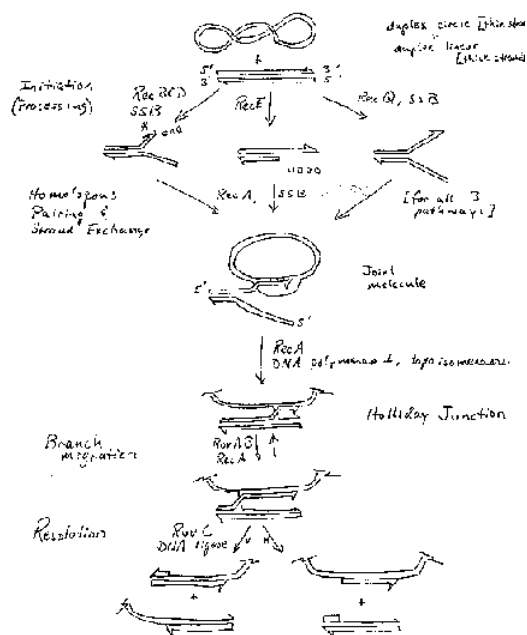 duplex circle [thin strand]
+
duplex linear
[thick strand]
+
5' 3'
3' 5'
Initiation
(Processing)
RecBCD
SSB
RecE
RecQ, SSB
Homologous
Pairing &
Strand Exchange
RecA, SSB
[for all 3
pathways]
Joint
molecule
5'
5'
RecA
DNA polymerase I, topoisomerase
Holliday Junction
Branch
migration
RuvAB
RecA
Resolution
RuvC
DNA ligase
+
+